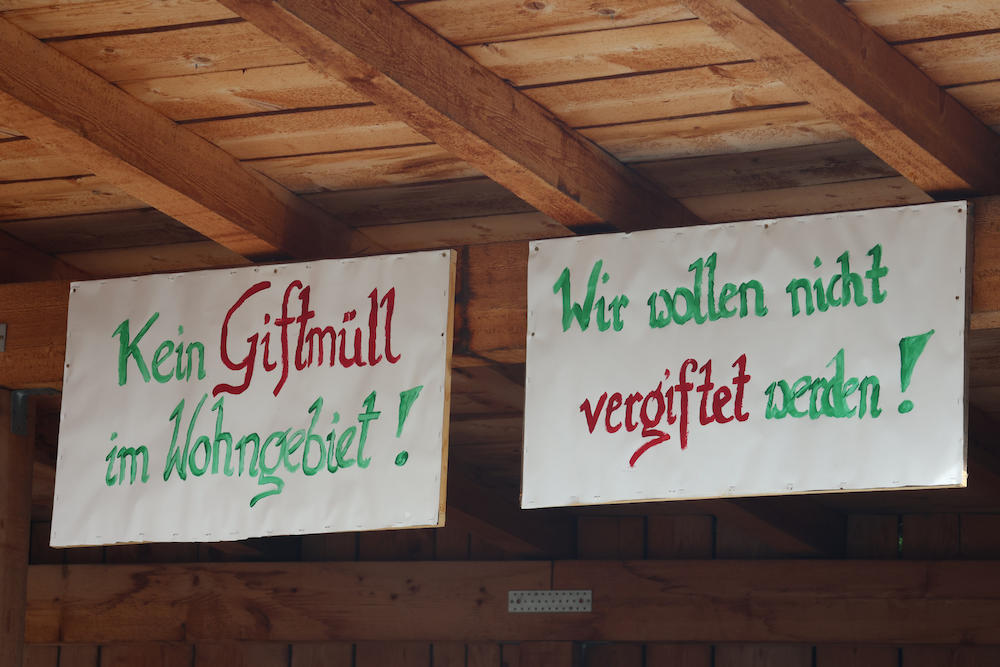 Kein Giftmüll
im Wohngebiet!
Wir wollen nicht
vergiftet werden!